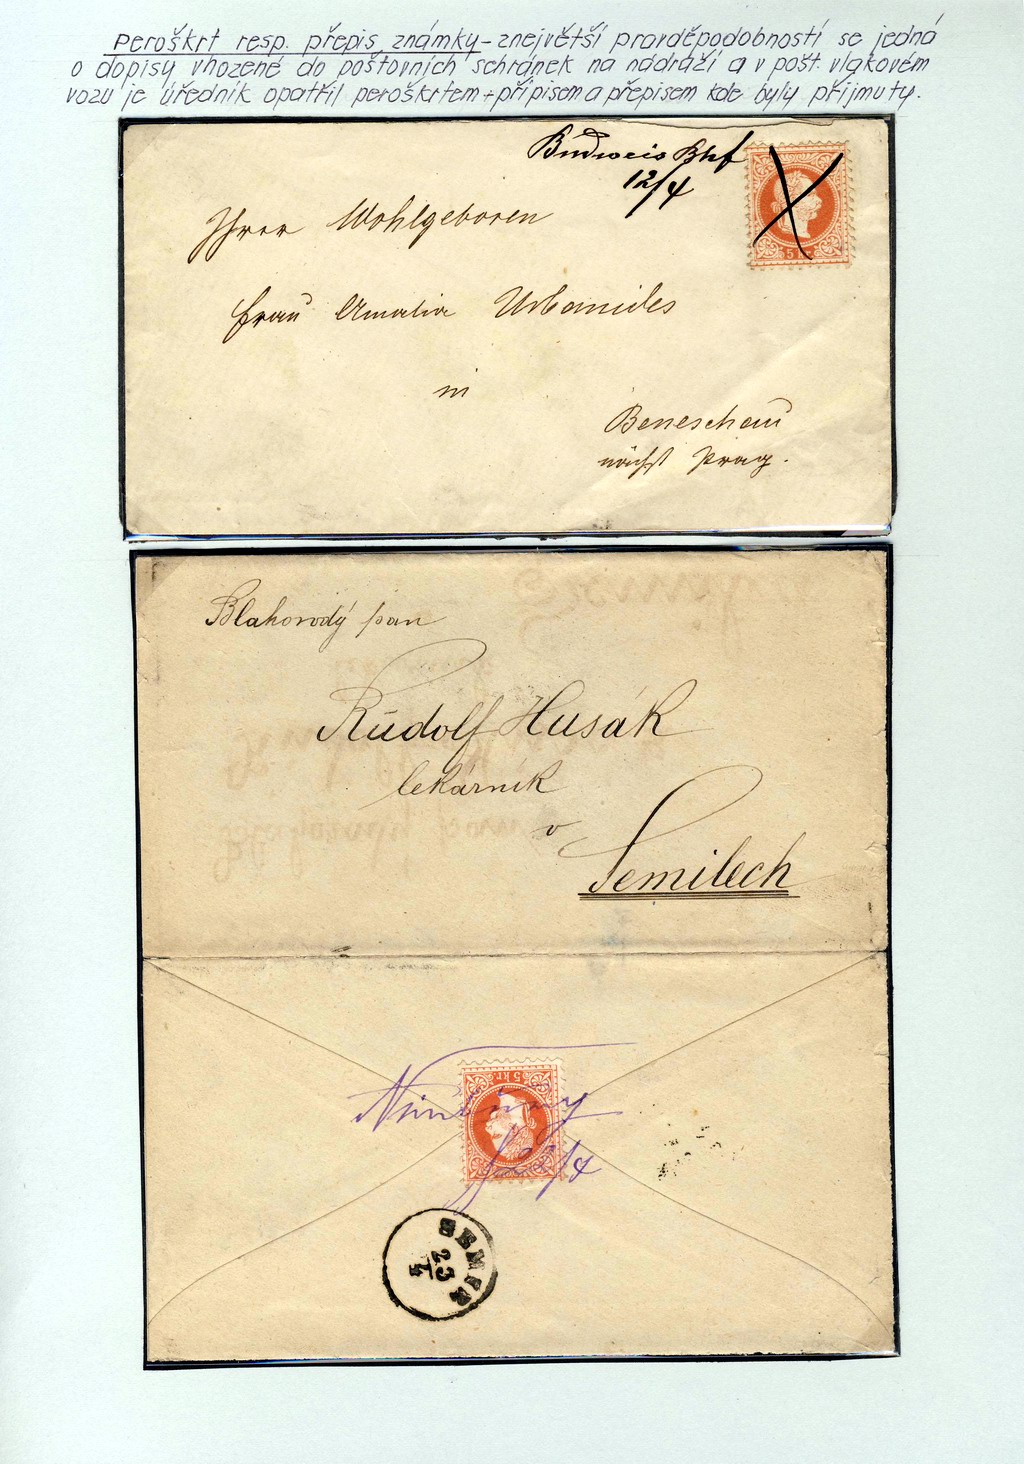 peroškrt resp. přepis známky - znejvětší pravděpodobností se jedná
o dopisy vhozené do poštovních schránek na nádraží a v pošt. vlakovém
vozu je úředník opatřil peroškrtem + přípisem a přepisem kde byly přijmuty.
Budweis Bhf
12/4
5 kr
Wohlgeboren
Frau Amalia Urbanides
in
Beneschau
nächst Prag.
Blahorodý pan
Rudolf Husák
lekárník
v
Semilech
5 kr.
SEMIL
23
4